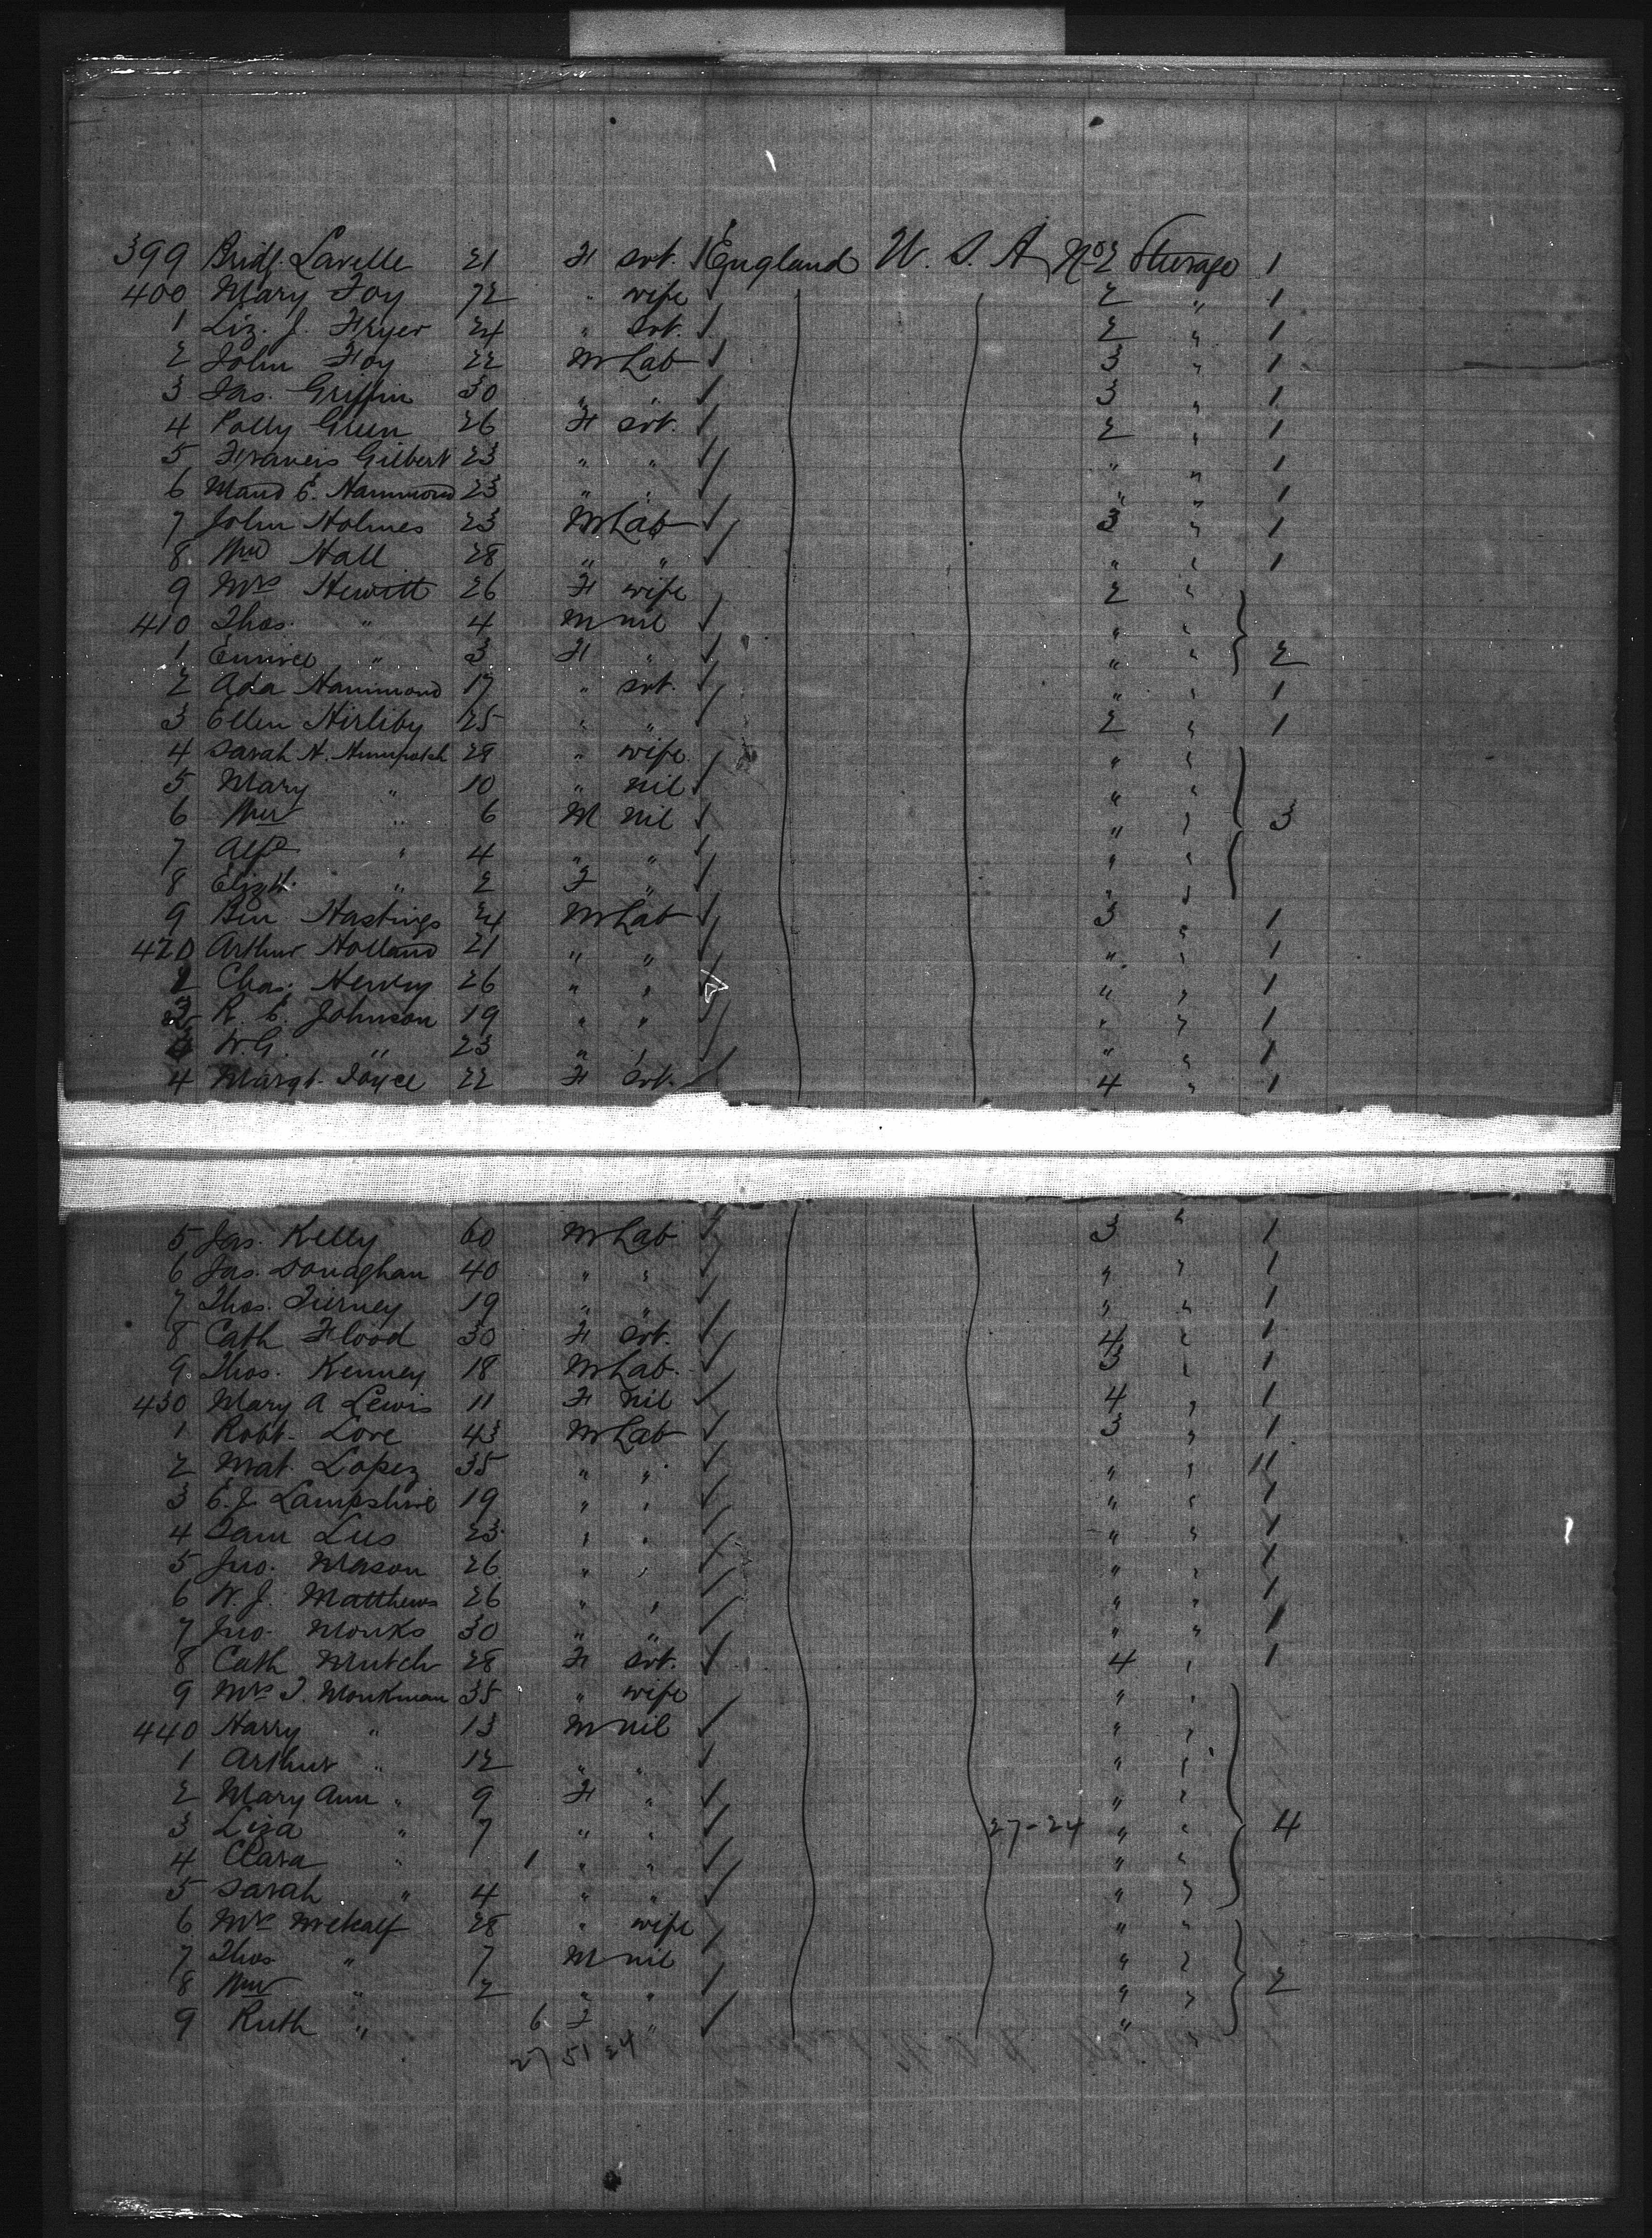 399 Bridgt. Lavelle 21 F Svt. England U. S. A No 2 Sterage 1
400 Mary Foy 72 " wife 2 " 1
1 Liz. J. Fryer 24 " Svt. 2 " 1
2 John Foy 22 M Lab 3 " 1
3 Jas. Griffin 30 " " 3 " 1
4 Polly Green 26 F Svt. 2 " 1
5 Francis Gilbert 23 " " " " 1
6 Maud E. Hammond 23 " " " " 1
7 John Holmes 23 M Lab 3 " 1
8 Wm Hall 28 " " " " 1
9 Mrs Hewitt 26 F wife 2 "
410 Thos. " 4 M nil " "
1 " 3 F " " " 2
2 Ada Hammond 17 " Svt. " " 1
3 Ellen 25 " " 2 " 1
4 Sarah H. 28 " wife " "
5 Mary " 10 " nil " "
6 Wm " 6 M nil " " 3
7 Alfd " 4 " " " "
8 Elizth. " 2 F " " "
9 Ben Hastings 24 M Lab 3 " 1
420 Arthur Holland 21 " " " " 1
2 Chas. Hervey 26 " " " " 1
3 R. E. Johnson 19 " " " " 1
W. G. " 23 " " " " 1
4 Margt. Joyce 22 F Svt. 4 " 1
5 Jas. Kelly 60 M Lab 3 " 1
6 Jas. Donaghan 40 " " " " 1
7 Thos. Tierney 19 " " " " 1
8 Cath Flood 30 F Svt. 4 " 1
9 Thos. Kenney 18 M Lab. 3 " 1
430 Mary A Lewis 11 F nil 4 " 1
1 Robt. Love 43 M Lab 3 " 1
2 Mat. Lopez 35 " " " " 11
3 E. J. Lampshire 19 " " " " 1
4 Sam Lees 23 " " " " 1
5 Jno. Mason 26 " " " " 1
6 W. J. Matthews 26 " " " " 1
7 Jno. Monks 30 " " " " 1
8 Cath Mutch 28 F Svt. 4 " 1
9 Mrs J. Monkman 35 " wife " "
440 Harry " 13 M nil " "
1 Arthur " 12 " " " "
2 Mary Ann " 9 F " " "
3 Liza " 7 " " 27-24 " " 4
4 Clara " 1 " " " "
5 Sarah " 4 " " " "
6 Mrs Metcalf 28 " wife " "
7 Thos " 7 M nil " "
8 Wm " 2 " " " " 2
9 Ruth " 6 F " "
27 51 24